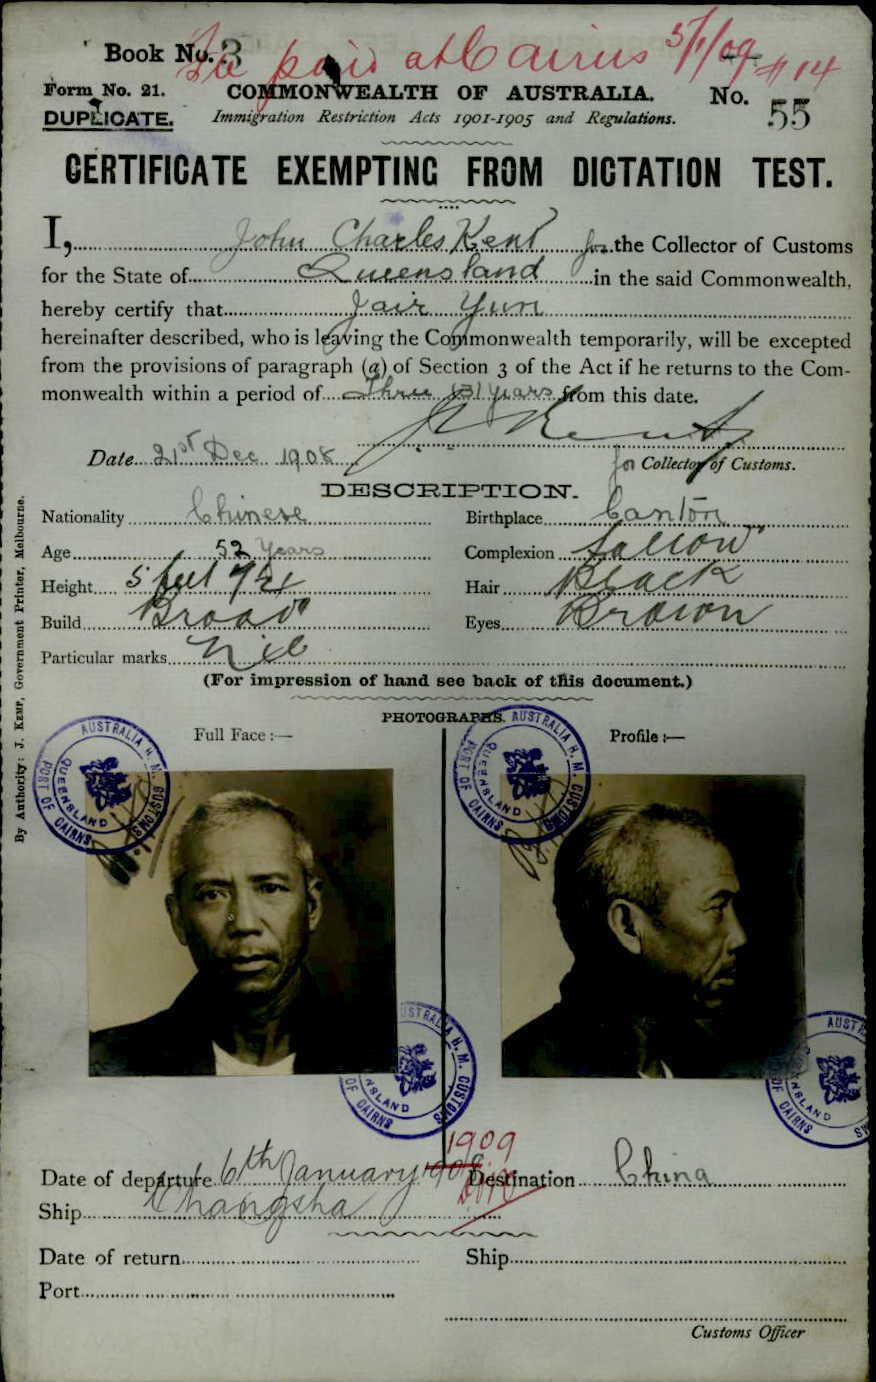 Book No. 3
Fee paid at Cairns 5/1/09 # 14
Form No. 21.
COMMONWEALTH OF AUSTRALIA.
No. 55
DUPLICATE.
Immigration Restriction Acts 1901-1905 and Regulations.
CERTIFICATE EXEMPTING FROM DICTATION TEST.
I, John Charles Kent for the Collector of Customs
for the State of Queensland in the said Commonwealth,
hereby certify that Jair Yun
hereinafter described, who is leaving the Commonwealth temporarily, will be excepted
from the provisions of paragraph (a) of Section 3 of the Act if he returns to the Com-
monwealth within a period of Three (3) years from this date.
J C Kent
Date 21st Dec 1908
for Collector of Customs.
DESCRIPTION.
Nationality Chinese
Birthplace Canton
Age 52 Years
Complexion Sallow
Height 5 feet
Hair Black
Build Broad
Eyes Brown
Particular marks Nil
(For impression of hand see back of this document.)
PHOTOGRAPHS.
Full Face :—
Profile :—
AUSTRALIA H. M. CUSTOMS PORT OF CAIRNS QUEENSLAND
AUSTRALIA H. M. CUSTOMS PORT OF CAIRNS QUEENSLAND
USTRALIA H. M. CUSTOMS OF CAIRNS NSLAND
AUSTR OF CAIRNS NSLAND
1909
Date of departure 6th January
Destination China
Ship Changsha
Date of return
Ship
Port
Customs Officer
By Authority: J. KEMP, Government Printer, Melbourne.